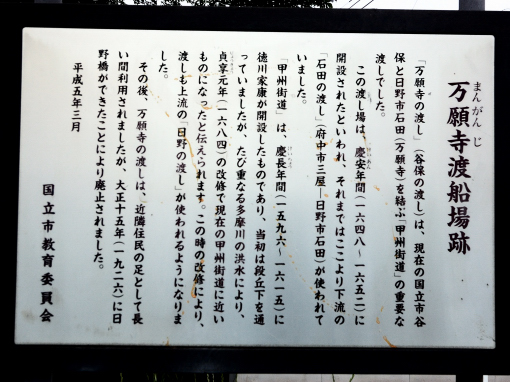 まんがんじ
万願寺渡船場跡
「万願寺の渡し」(谷保の渡し)は、現在の国立市谷
保と日野市石田(万願寺)を結ぶ「甲州街道」の重要な
渡しでした。
けいあん
この渡し場は、慶安年間(一六四八〜一六五二)に
開設されたといわれ、それまではここより下流の
「石田の渡し」(府中市三屋―日野市石田)が使われて
いました。
けいちょう
「甲州街道」は、慶長年間(一五九六〜一六一五)に
徳川家康が開設したものであり、当初は段丘下を通
っていましたが、たび重なる多摩川の洪水により、
じょうきょう
貞享元年(一六八四)の改修で現在の甲州街道に近い
ものになったと伝えられます。この時の改修により、
渡しも上流の「日野の渡し」が使われるようになりま
した。
その後、万願寺の渡しは、近隣住民の足として長
い間利用されましたが、大正十五年(一九二六)に日
野橋ができたことにより廃止されました。
平成五年三月
国立市教育委員会